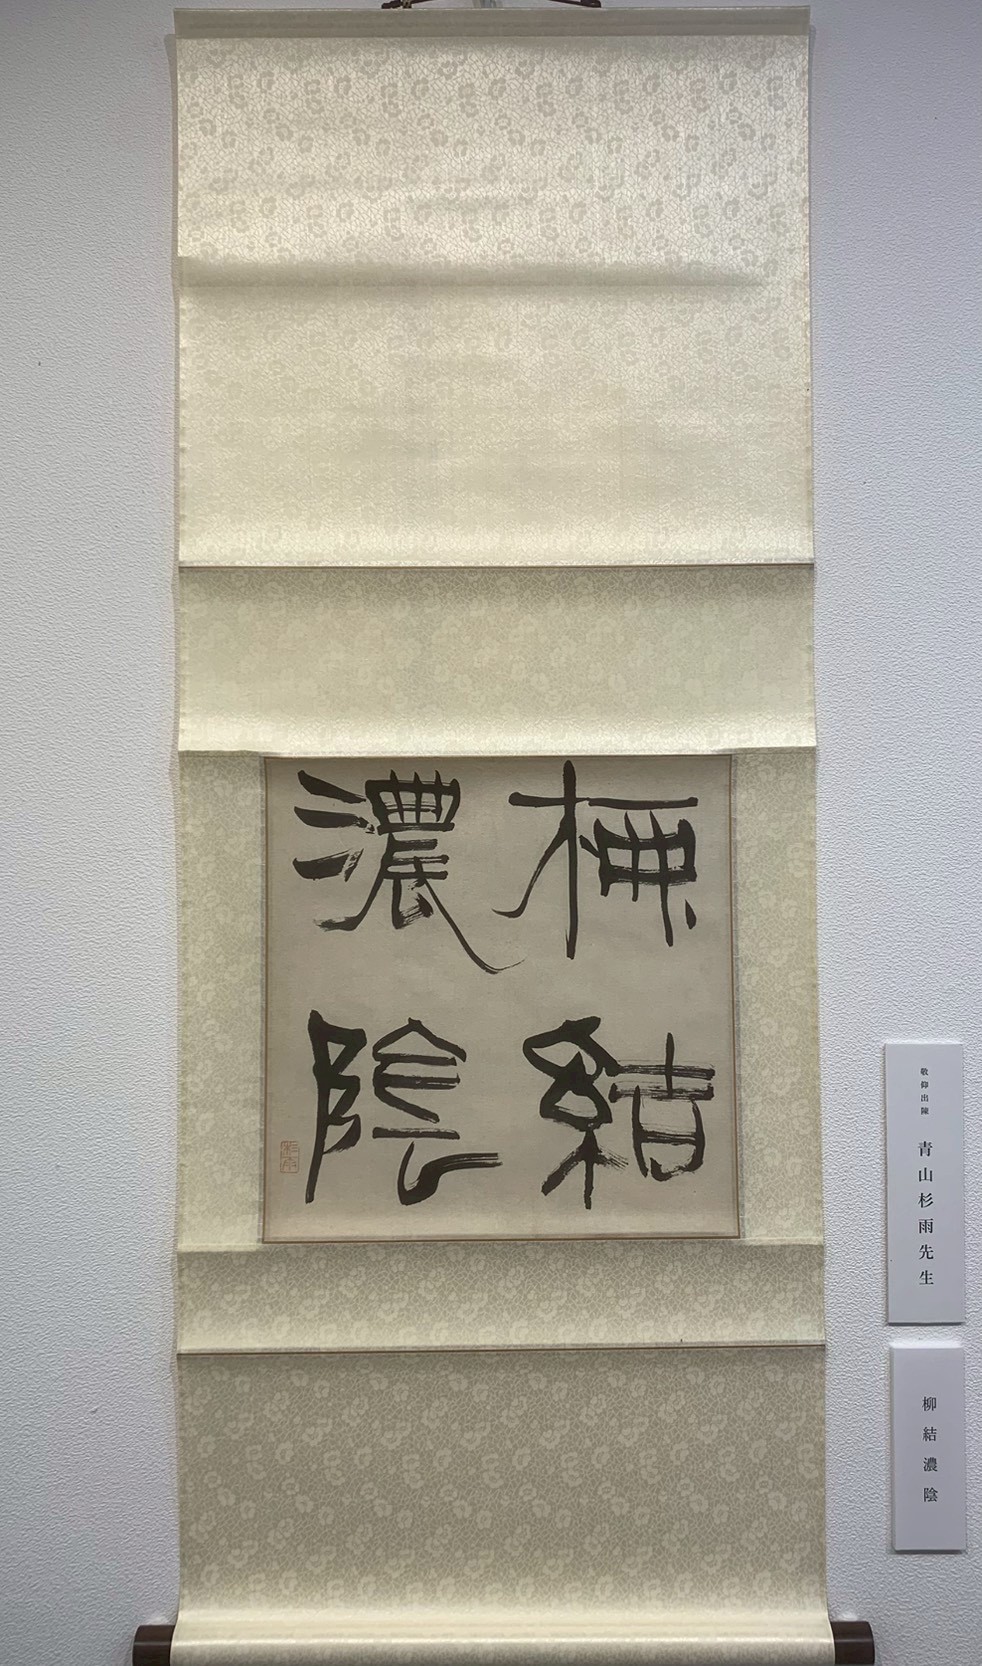 柳結
濃陰
敬仰出陳 青山杉雨先生
柳結濃陰